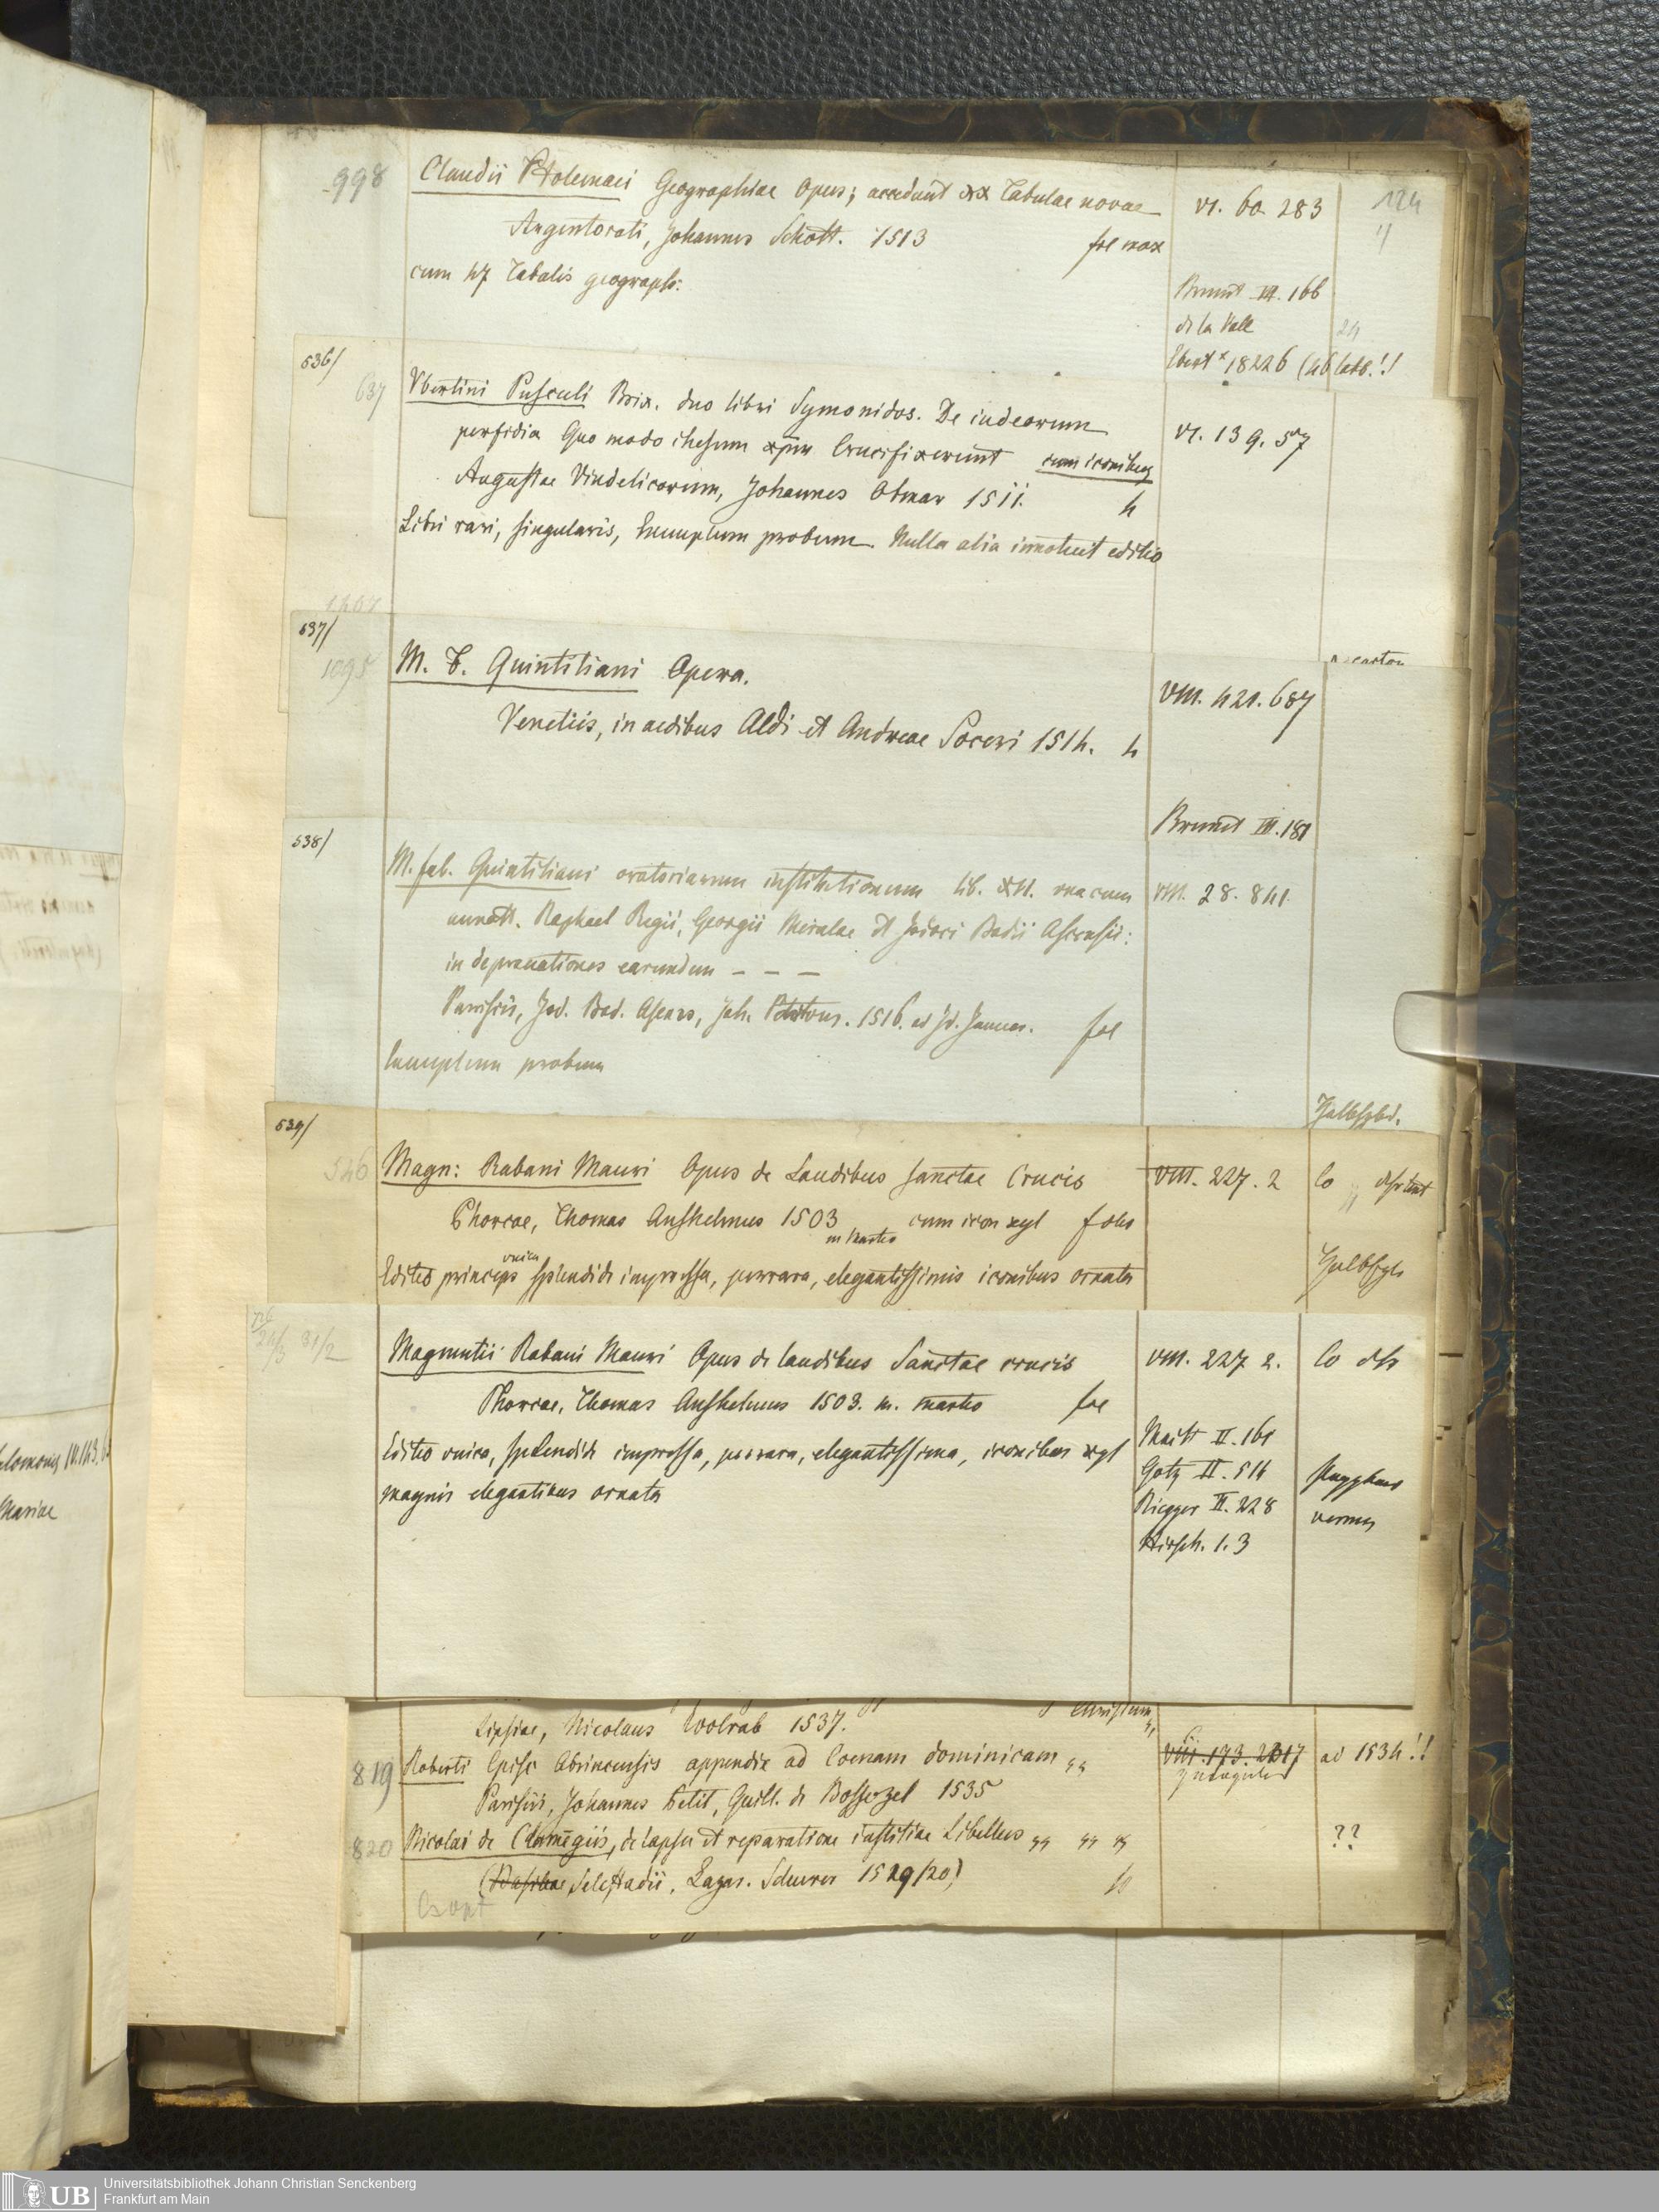 998
Claudii Ptolemaei Geographiae Opus; accedunt xx Tabulae novae
VI. 60. 283
124
Argentorati, Johannes Schott. 1513
fol max
cum 47 Tabulis geograph:
Brunet III. 166
de la Vall
24
Ebert 18226 (46 tabb.!!
536/
637
Ubertini Pusculi Brix. duo libri Symonidos. De iudeorum
perfidia Quo modo ihesum xpm Crucifixerunt cum iconibus
VI. 139. 57
Augustae Vindelicorum, Johannes Otmar 1511.
4
Libri rari, singularis, Exemplum probum. Nulla alia innotuit editio
537/
1095
M. F. Quintiliani Opera.
VIII. 421. 687
Venetiis, in aedibus Aldi et Andreae Soceri 1514. 4
Brunet III. 181
538/
M. fab. Quintiliani oratoriarum institutionum lib. XII. una cum
VIII. 28. 841.
annott. Raphael Regii, Georgii Merulae et Jodoci Badii Ascensii:
in depravationes earundem - - -
Parisiis, Jod. Bad. Ascens, Joh. 1516. ad Id. Januar.
fol
Exemplum probum
Halbfzbd.
539/
526
Magn: Rabani Mauri Opus de Laudibus sanctae Crucis
VIII. 227. 2
Co
Phorcae, Thomas Anshelmus 1503 m Martio cum icon xyl folio
Editio princeps unica splendide impressa, perrara, elegantissimis iconibus ornata
31/2
Magnentii Rabani Mauri Opus de laudibus Sanctae crucis
VIII. 227 2.
Co
Phorcae, Thomas Anshelmus 1503. m. martio
fol
Editio unica, splendide impressa, perrara, elegantissima, iconibus xyl
magnis elegantibus ornata
Mait II. 161
Gotz II. 514
Riegger II. 228
Hirsch. 1. 3
Lipsiae, Nicolaus Wolrab 1537.
Christum
819
Roberti Episc Abrincensis appendix ad Coenam dominicam
VIII. 173. 2617
ad 1534!!
Parisiis, Johannes Petit, Guill. de Bossozel 1535
820
Nicolai de Clamegiis, de lapsu et reparatione iustitiae Libellus
??
(Basileae Selestadii, Lazar. Schurer 1529/20)
Universitätsbibliothek Johann Christian Senckenberg
Frankfurt am Main
UB